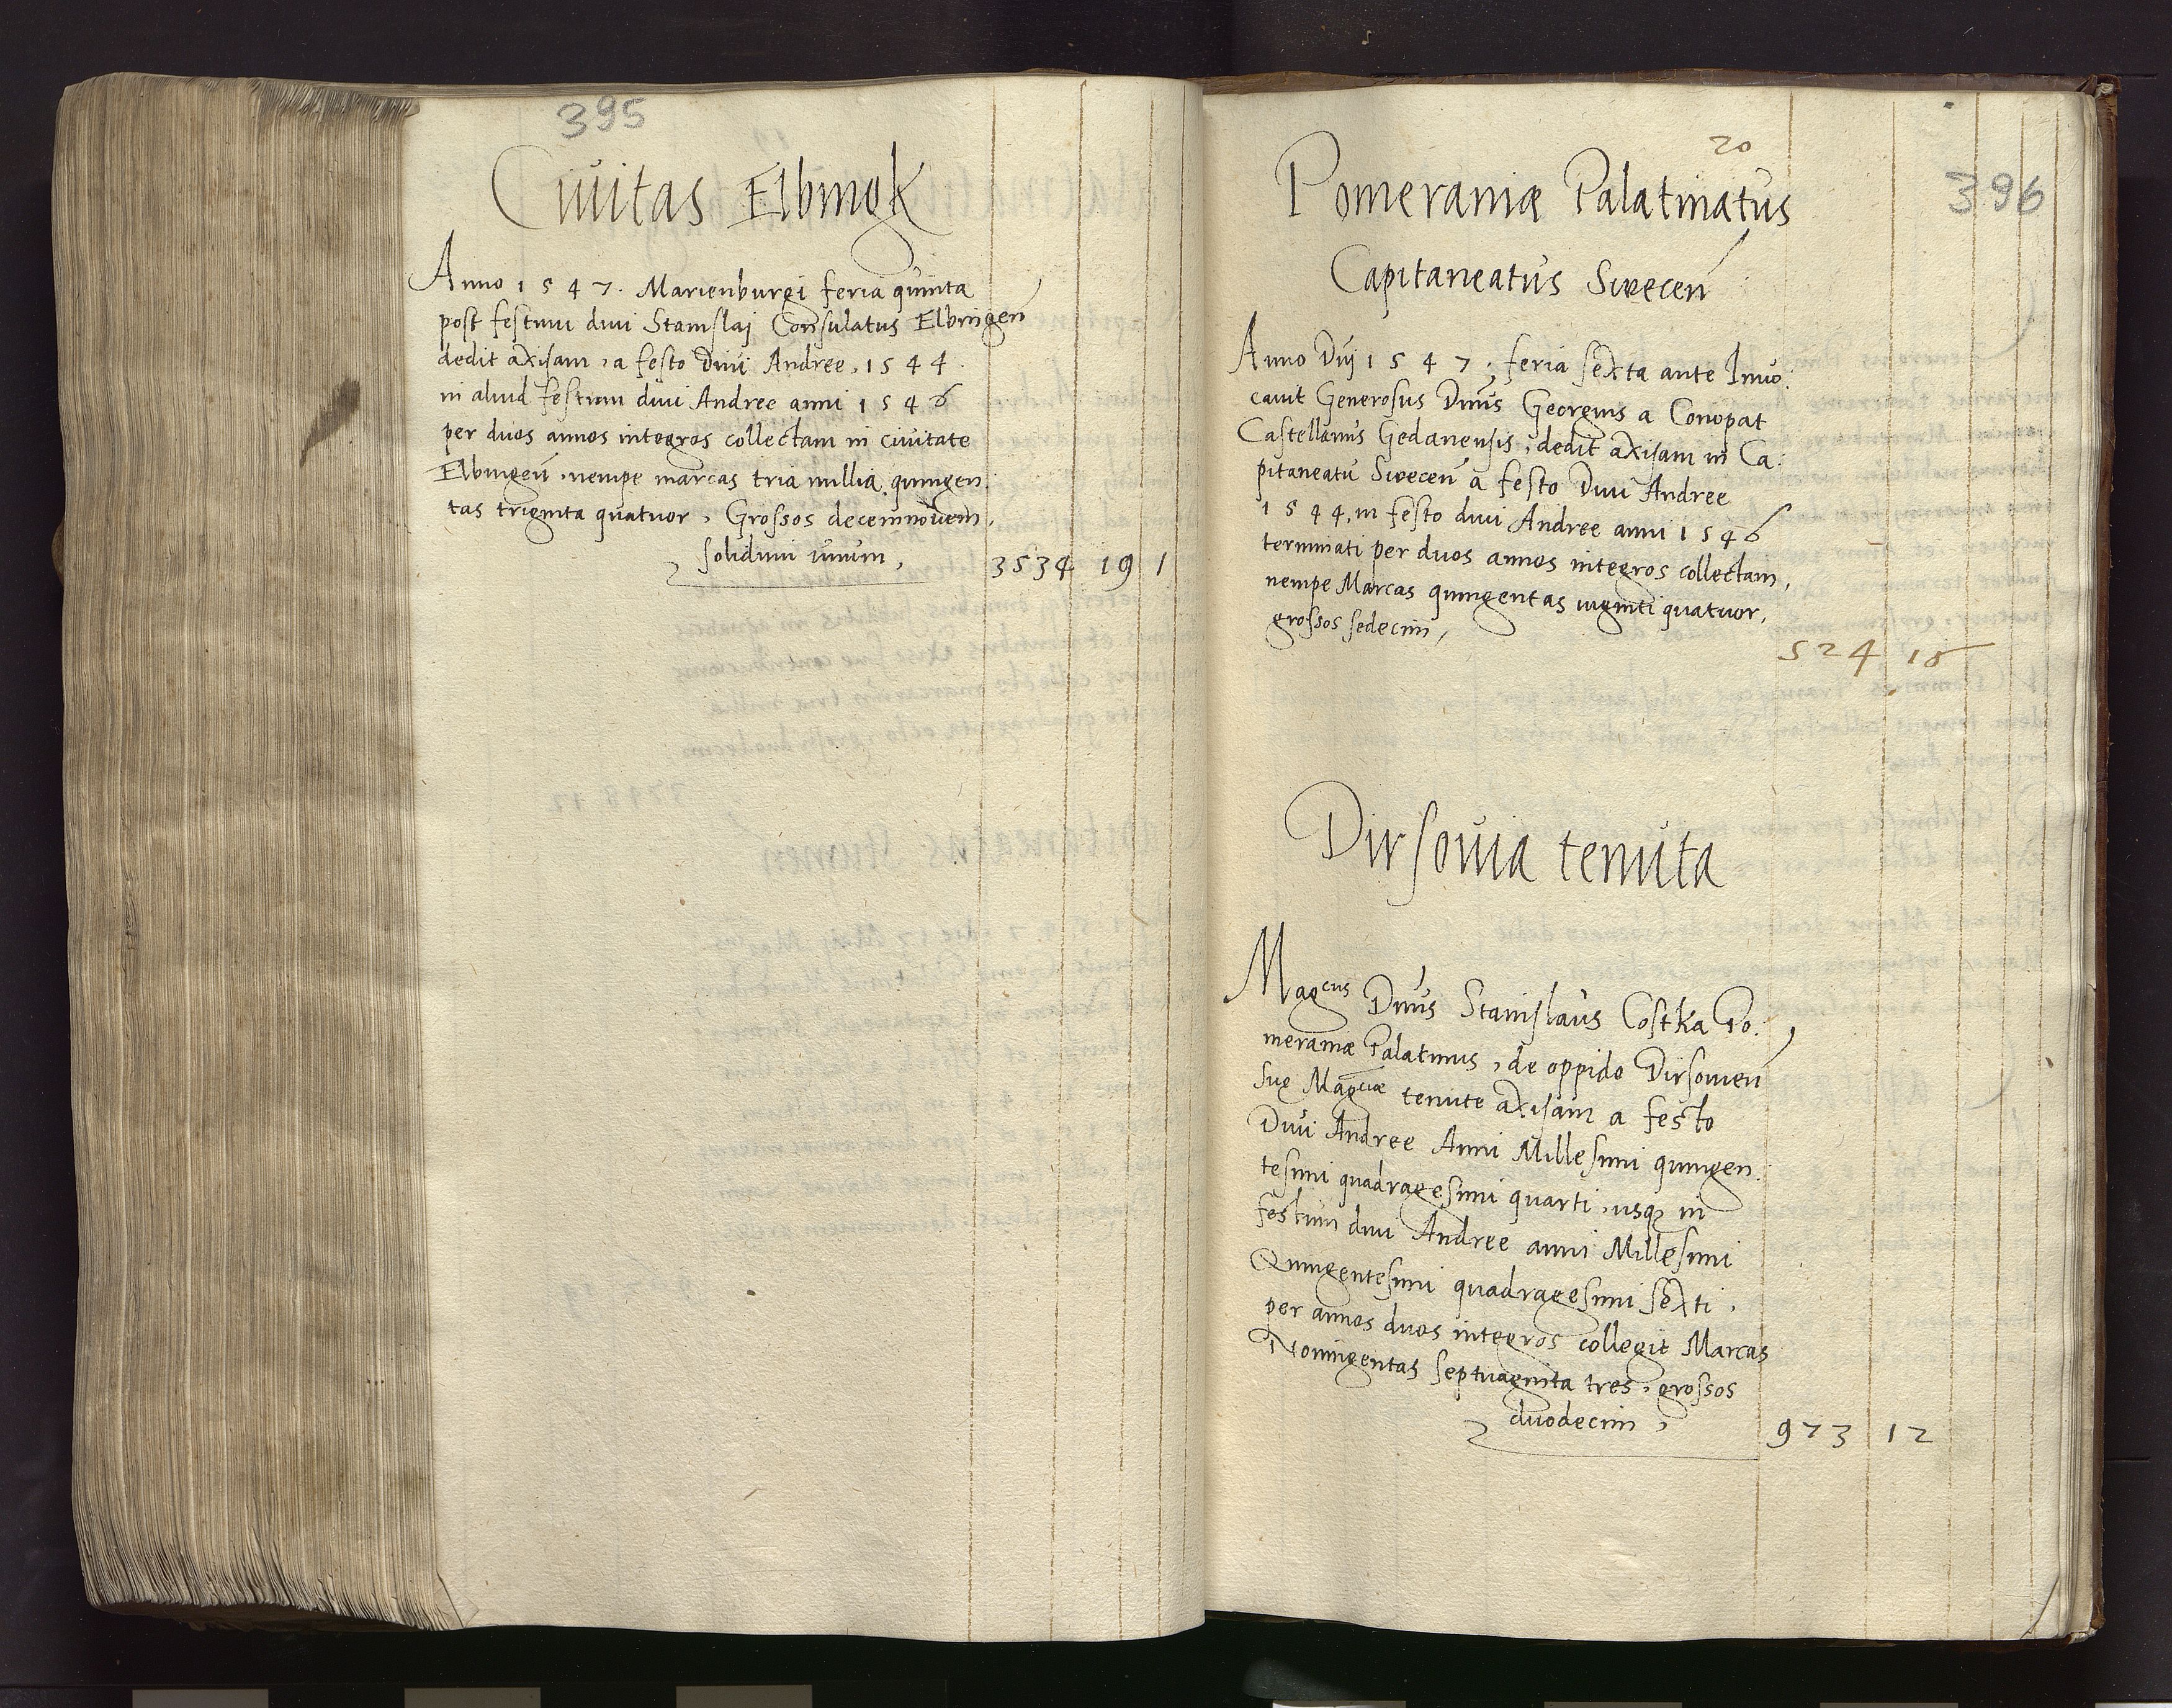 395
Civitas Elbingk
Anno 1547. Marienburgi feria quinta
post festum divi Stanislaj Consulatus Elbingen
dedit axisam, a festo Divi Andree, 1544.
in aliud festum divi Andree anni 1546
per duos annos integros collectam in civitate
Elbingen̄, nempe marcas tria millia quingen
tas triginta quatuor, Grossos decemnovem,
solidum unum, 3534 19 1
20
396
Pomeraniæ Palatinatus
Capitaneatus Swecen
Anno Dnj 1547, feria sexta ante Invo:
cavit Generosus Dnūs Georgius a Conopat
Castellanus Gedanensis, dedit axisam in Ca:
pitaneatu Swecen̄ a festo Divi Andree
1544, in festo divi Andree anni 1546
terminati per duos annos integros collectam,
nempe Marcas quingentas viginti quatuor,
grossos sedecim,
524 16
Dirsovia tenuta
Mag^cus Dnūs Stanislaus Costka Po:
meraniæ Palatinus, de oppido Dirsovien̄
Suę Mag^ciæ tenute axisam a festo
Divi Andree Anni Millesimi quingen:
tesimi quadragesimi quarti, usq3 in
festum divi Andree anni Millesimi
Quingentesimi quadragesimi sexti,
per annos duos integros collegit Marcas
Noningentas septuaginta tres, grossos
duodecim, 973 12